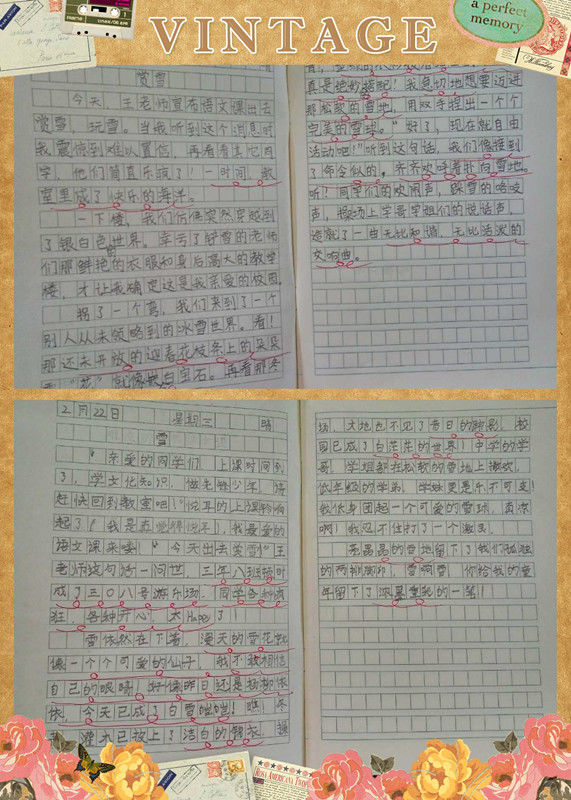 VINTAGE
a perfect
memory
赏雪
今天，王老师宣布语文课出去
赏雪，玩雪。当我听到这个消息时
我震惊到难以置信，再看看其它同
学，他们简直乐疯了！一时间，教
室里成了快乐的海洋。
一下楼，我们仿佛突然穿越到
了银白色世界。幸亏了舒雪的老师
们那鲜艳的衣服和身后高大的教学
楼，才让我确定这是我亲爱的校园。
拐了一个弯，我们来到了一个
别人从未领略到的冰雪世界。看！
那还未开放的迎春花枝条上的朵朵
白宝石。再看那冬
真是绝妙搭配！我急切地想要迈进
那松软的雪地，用双手捏出一个个
完美的雪球。“好了，现在就自由
活动吧！”听到这句话，我们像接到
了命令似的，齐齐欢呼着扑向雪地。
听！同学们的欢闹声，踩雪的咯吱
声，操场上学哥学姐们的说话声，
造就了一曲无比和谐，无比活泼的
交响曲。
2月22日 星期三 晴
雪
“亲爱的同学们，上课时间到
了，学文化知识，做先锋少年，请
赶快回到教室吧！”悦耳的上课铃响
起了！我最爱的
语文课来喽！“今天出去赏雪！”王
老师这句话一问世，三年八班顿时
成了三〇八号游乐场，同学各种疯
狂，各种开心，太Happy了！
雪依然在下着，漫天的雪花就
像一个个可爱的仙子，我不敢相信
自己的眼睛！好像昨日还是杨柳依
依，今天已成了白雪皑皑！瞧，冬
灌木已披上了洁白的锦衣，操
场、大地也不见了昔日的踪影，校
园已成了白茫茫的世界！中学的学
哥、学姐都在松软的雪地上撒欢，
低年级的学弟、学妹更是乐不可支！
我低身团起一个可爱的雪球，真凉
啊！我忍不住打了一个激灵。
亮晶晶的雪地留下了我们孤独
的两排脚印，雪啊雪！你给我的童
年留下了浓墨重彩的一笔！